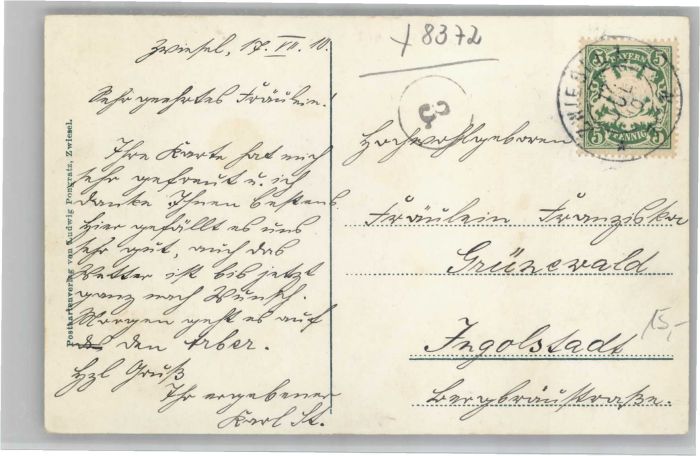 Zwiesel, 17. VII. 10.
Sehr geehrtes Fräulein!
Ihre Karte hat mich
sehr gefreut u. ich
danke Ihnen bestens.
Hier gefällt es uns
sehr gut, auch das
Wetter ist bis jetzt
ganz nach Wunsch.
Morgen geht es auf
den Arber.
Hzl Gruß
Ihr ergebener
Karl St.
Postkartenverlag van Ludwig Pongratz, Zwiesel.
+ 8372
3
BAYERN
5 5
PFENNIG
ZWIESEL
Hochwohlgeboren
Fräulein Franziska
Grünewald
Ingolstadt
Bergbräustraße.
15,-